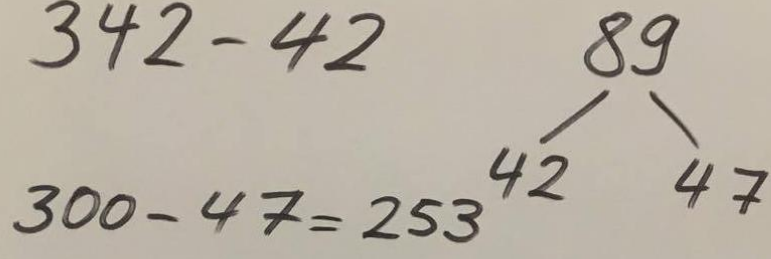 342-42
89
42 47
300-47=253